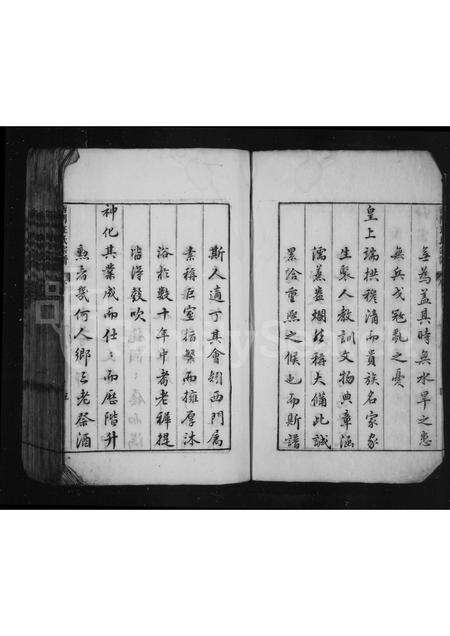 無為蓋其時無水旱之患
無兵戎冦亂之憂
皇上端拱穆清而貴族名家家
生聚人教訓文物典章涵
濡蒸蓋爛然稱大備此誠
累洽重熙之候也而斯譜
斯人適丁其會翅西門屬
素稱巨室指繁而擁厚沐
浴於數十年中耆老稗提
皆得鼓吹
神化其業成而仕仕而歷階升
勲者幾何人鄉之老祭酒